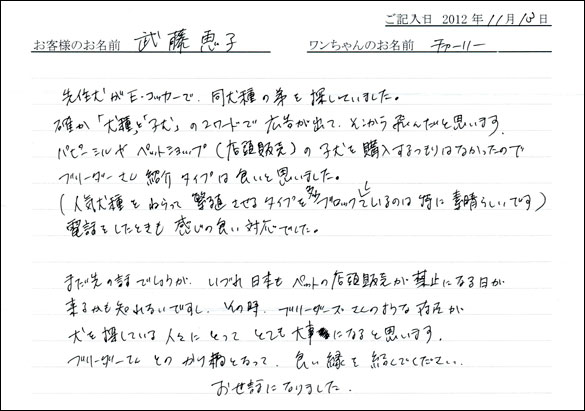 ご記入日 2012年11月13日
お客様のお名前 武藤恵子 ワンちゃんのお名前 チャーリー
先住犬がE・コッカーで、同犬種の弟を探していました。
確か「犬種」と「子犬」の2ワードで広告が出て、そこから飛んだと思います。
パピーミルやペットショップ(店頭販売)の子犬を購入するつもりはなかったので
ブリーダーさん紹介タイプは良いと思いました。
(人気犬種をねらって繁殖させるタイプをブロックしているのは特に素晴らしいです)
電話をしたときも感じの良い対応でした。
まだ先の話でしょうが、いづれ日本もペットの店頭販売が禁止になる日が
来るかも知れないですし、その時、ブリーダーズさんのような存在が
犬を探している人々にとってとても大事になると思います。
ブリーダーさんとのかけ橋となって、良い縁を結んでください。
お世話になりました。